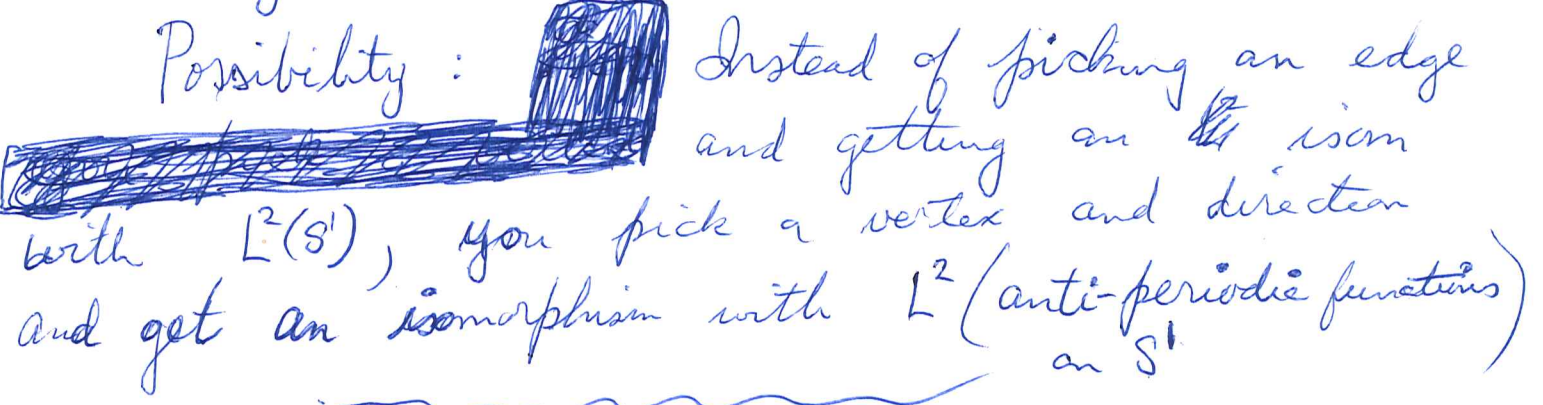 Possibility : Instead of picking an edge
and getting an isom
with L²(S¹), you pick a vertex and direction
and get an isomorphism with L²(anti-periodic functions)
on S¹